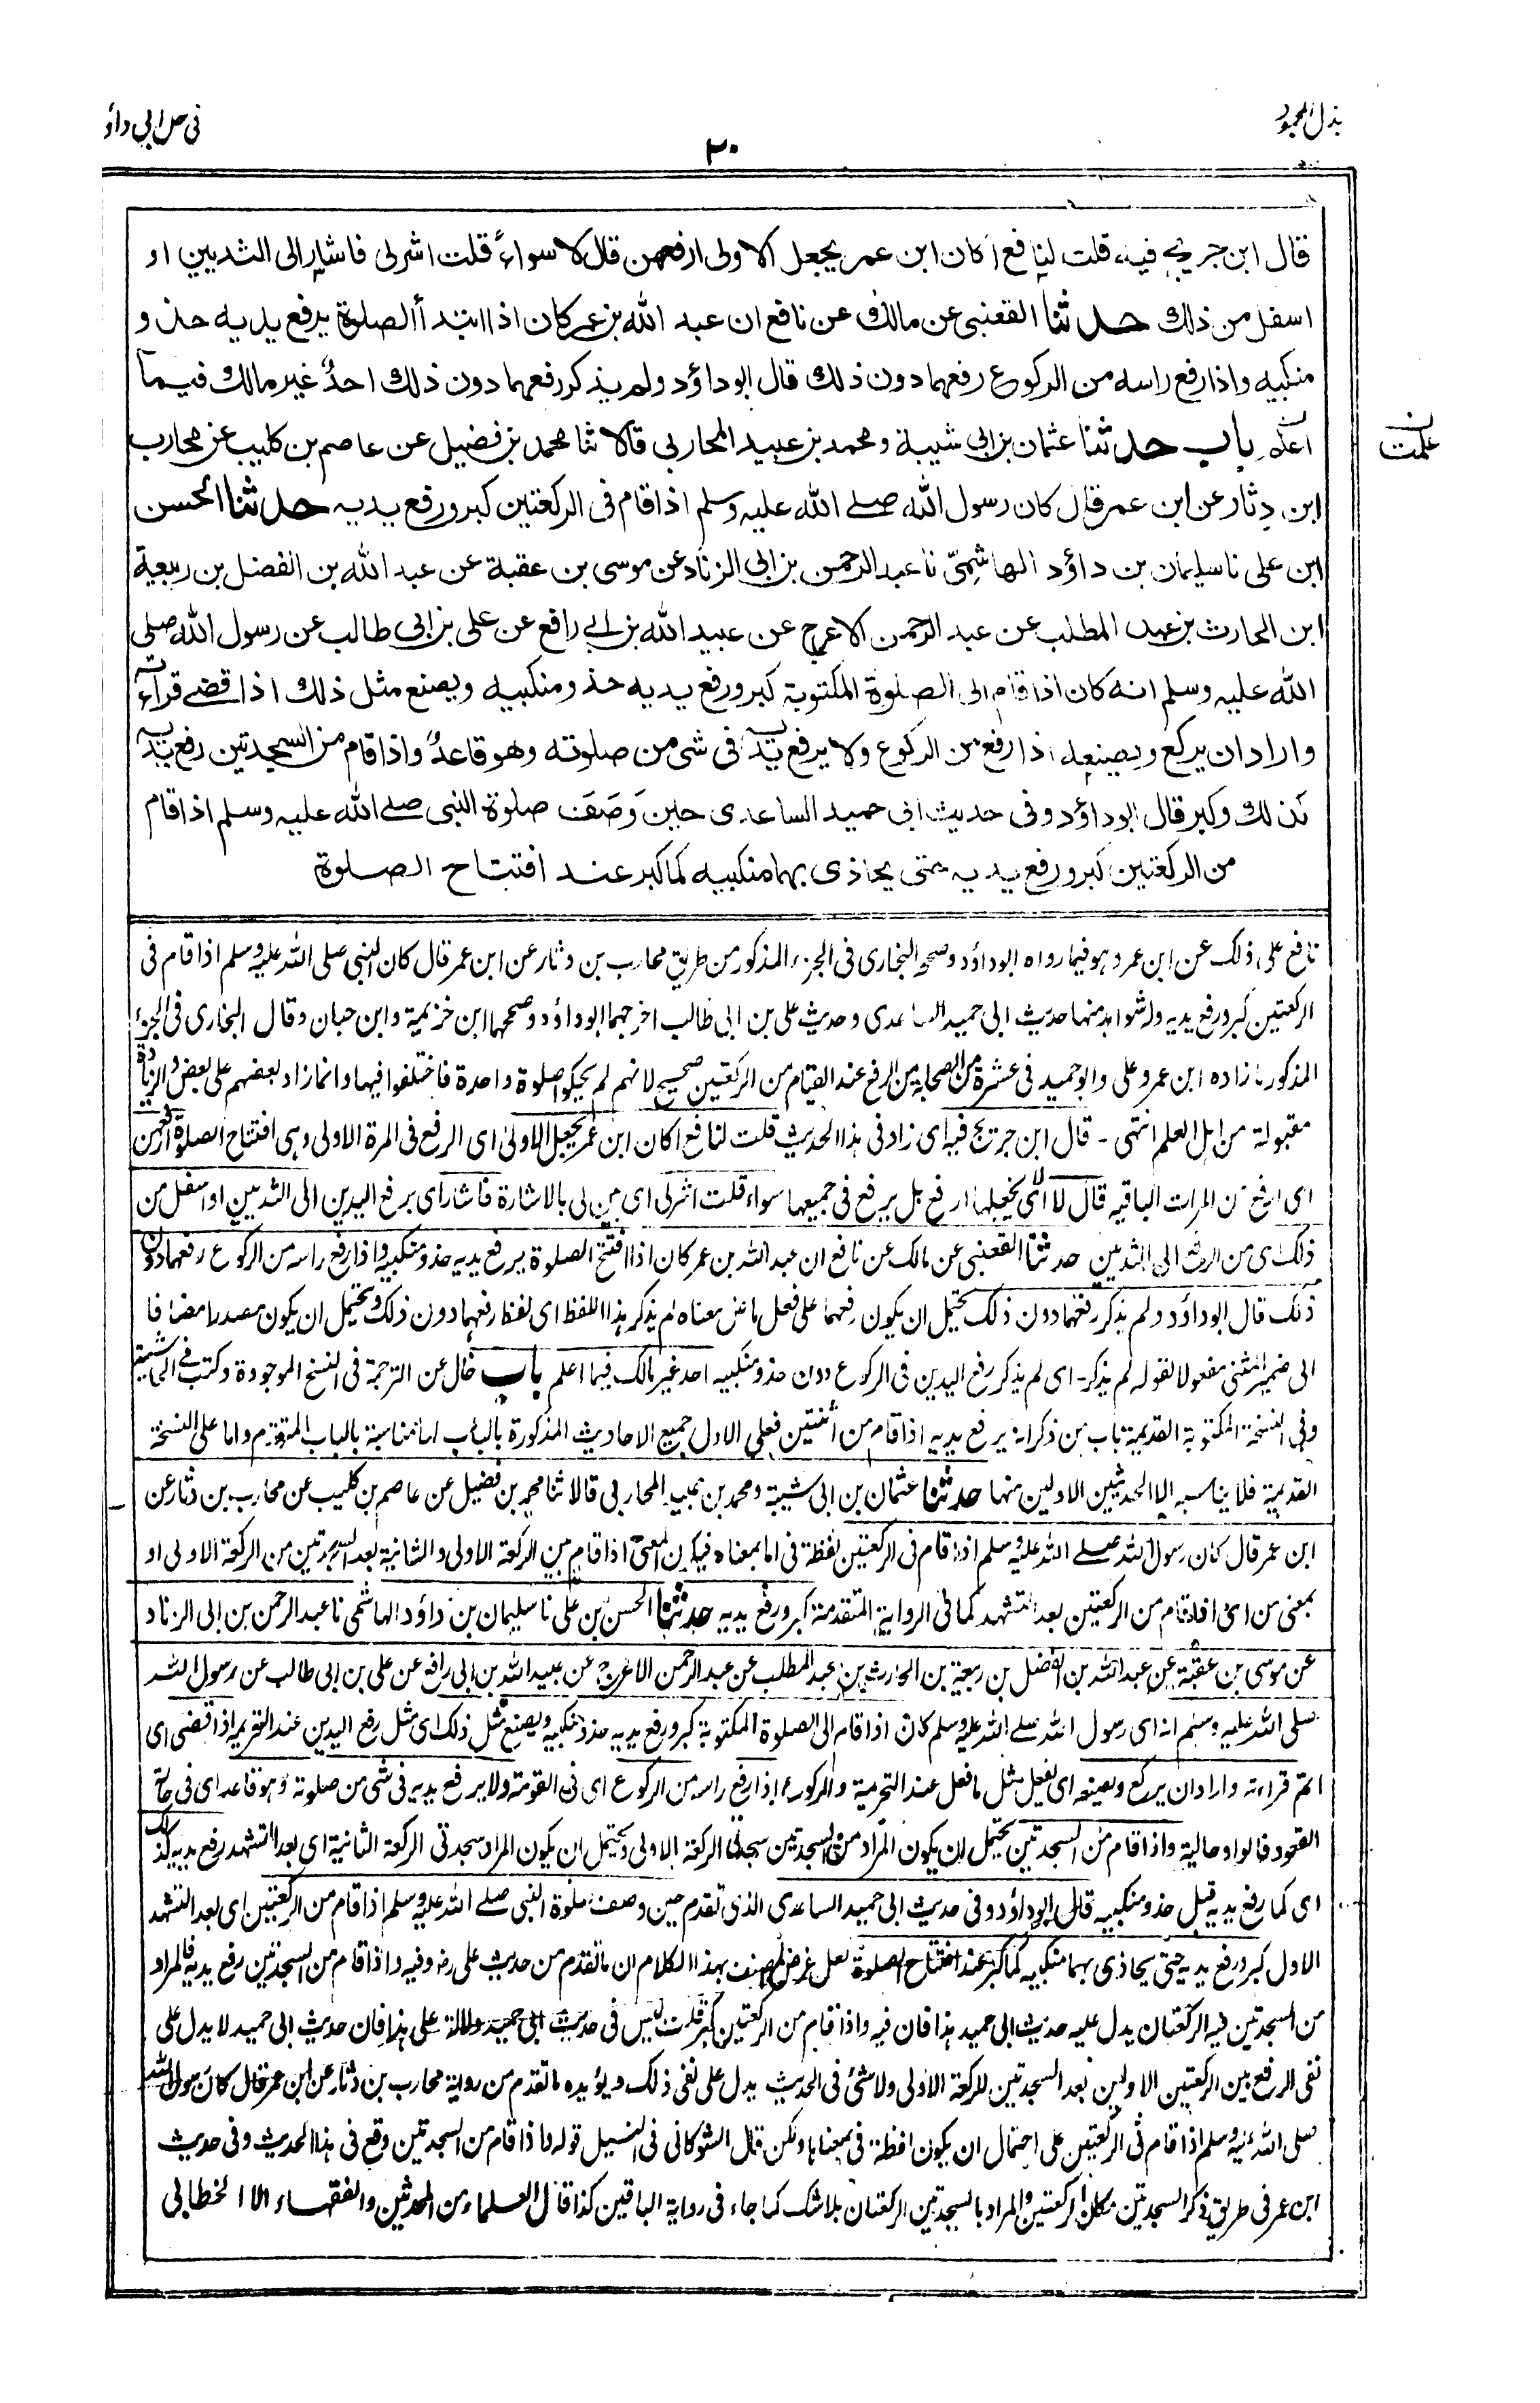 بذل المجهود
٣٠
فی حل ابی داؤد
قال ابن جریج فیه قلت لنافع اکان ابن عمر یجعل الاولی ارفعهن قال لا سواءً قلت اشرلی فاشار الی الثدیین او
اسفل من ذلك حدثنا القعنبی عن مالك عن نافع ان عبد الله بن عمر کان اذا ابتدأ الصلوة یرفع یدیه حذو
منکبیه واذا رفع راسه من الرکوع رفعهما دون ذلك قال ابوداؤد ولم یذکر رفعهما دون ذلك احدٌ غیر مالك فیما
اعلم باب حدثنا عثمان بن ابی شیبة ومحمد بن عبید المحاربی قالا ثنا محمد بن فضیل عن عاصم بن کلیب عن محارب
علمت
ابن دثار عن ابن عمر قال کان رسول الله صلے الله علیه وسلم اذا قام فی الرکعتین کبر ورفع یدیه حدثنا الحسن
ابن علی نا سلیمان بن داؤد الهاشمیّ نا عبد الرحمن بن ابی الزناد عن موسی بن عقبة عن عبد الله بن الفضل بن ربیعة
ابن الحارث بن عبد المطلب عن عبد الرحمن الاعرج عن عبید الله بن ابی رافع عن علی بن ابی طالب عن رسول الله صلی
الله علیه وسلم انه کان اذا قام الی الصلوة المکتوبة کبر ورفع یدیه حذو منکبیه ویصنع مثل ذلك اذا قضے قراءته
واراد ان یرکع ویصنعه اذا رفع من الرکوع ولا یرفع یدیه فی شی من صلوته وهو قاعدٌ واذا قام من السجدتین رفع یدیه
کذلك وکبر قال ابوداؤد وفی حدیث ابی حمید الساعدی حین وَصَفَ صلوة النبی صلے الله علیه وسلم اذا قام
من الرکعتین کبر ورفع یدیه حتی یحاذی بهما منکبیه کما کبر عند افتتاح الصلوة
نافع علی ذلک عن ابن عمر وہو فیما رواہ ابوداؤد وصححہ البخاری فی الجزء المذکور من طریق محارب بن دثار عن ابن عمر قال کان النبی صلی اللہ علیہ وسلم اذا قام فی
الرکعتین کبر ورفع یدیہ ولہ شواہد منہا حدیث ابی حمید الساعدی وحدیث علی بن ابی طالب اخرجہما ابوداؤد وصححہما ابن خزیمۃ وابن حبان وقال البخاری فی الجزء
المذکور ما زادہ ابن عمر وعلی وابوحمید فی عشرۃ من الصحابۃ من الرفع عند القیام من الرکعتین صحیح لانہم لم یحکوا صلوۃ واحدۃ فاختلفوا فیہا وانما زاد بعضہم علی بعض والزیادۃ
مقبولۃ من اہل العلم انتہی - قال ابن جریج فیہ ای زاد فی ہذا الحدیث قلت لنافع اکان ابن عمر یجعل الاولیٰ ای الرفع فی المرۃ الاولی وہی افتتاح الصلوۃ ارفعہن
ای ارفع من المرات الباقیہ قال لا ای لا یجعلہا ارفع بل یرفع فی جمیعہا سواء قلت اشرلی ای بین لی بالاشارۃ فاشار ای برفع الیدین الی الثدیین او اسفل من
ذلک ای من الرفع الی الثدیین حدثنا القعنبی عن مالک عن نافع ان عبد اللہ بن عمر کان اذا افتتح الصلوۃ یرفع یدیہ حذو منکبیہ واذا رفع راسہ من الرکوع رفعہما دون
ذلک قال ابوداؤد ولم یذکر رفعہما دون ذلک یحتمل ان یکون رفعہما علی فعل ماض معناہ لم یذکر ہذا اللفظ ای لفظ رفعہما دون ذلک ویحتمل ان یکون مصدرا مضافا
الی ضمیر المثنی مفعولا لقولہ لم یذکر۔ ای لم یذکر رفع الیدین فی الرکوع دون حذو منکبیہ احد غیر مالک فیما اعلم باب خال عن الترجمۃ فی النسخ الموجودۃ وکتب فی الحاشیۃ
وفی النسخۃ المکتوبۃ القدیمۃ باب من ذکر انہ یرفع یدیہ اذا قام من اثنتین فعلی الاول جمیع الاحادیث المذکورۃ بالباب لہا مناسبۃ بالباب المتقدم واما علی النسخۃ
القدیمۃ فلا یناسبہ الا الحدیثین الاولین منہا حدثنا عثمان بن ابی شیبۃ ومحمد بن عبید المحاربی قالا ثنا محمد بن فضیل عن عاصم بن کلیب عن محارب بن دثار عن
ابن عمر قال کان رسول اللہ صلے اللہ علیہ وسلم اذا قام فی الرکعتین لفظۃ فی اما بمعناہ فیکون المعنی اذا قام بین الرکعۃ الاولی والثانیۃ بعد السجدتین من الرکعۃ الاولی او
بمعنی من ای اذا قام من الرکعتین بعد التشہد کما فی الروایۃ المتقدمۃ کبر ورفع یدیہ حدثنا الحسن بن علی نا سلیمان بن داؤد الہاشمی نا عبد الرحمن بن ابی الزناد
عن موسی بن عقبۃ عن عبد اللہ بن الفضل بن ربیعۃ بن الحارث بن عبد المطلب عن عبد الرحمن الاعرج عن عبید اللہ بن ابی رافع عن علی بن ابی طالب عن رسول اللہ
صلی اللہ علیہ وسلم انہ ای رسول اللہ صلے اللہ علیہ وسلم کان اذا قام الی الصلوۃ المکتوبۃ کبر ورفع یدیہ حذو منکبیہ ویصنع مثل ذلک ای مثل رفع الیدین عند التحریمہ اذا قضی ای
اتم قراءتہ واراد ان یرکع ویصنعہ ای یفعل مثل ما فعل عند التحریمۃ والرکوع اذا رفع راسہ من الرکوع ای فی القومۃ ولا یرفع یدیہ فی شی من صلوتہ وہو قاعد ای فی حالۃ
القعود فالواو حالیۃ واذا قام من السجدتین یحتمل ان یکون المراد من السجدتین سجدتا الرکعۃ الاولی ویحتمل ان یکون المراد سجدتی الرکعۃ الثانیۃ ای بعد التشہد رفع یدیہ کذلک
ای کما رفع یدیہ قبل حذو منکبیہ قال ابوداؤد وفی حدیث ابی حمید الساعدی الذی تقدم حین وصف صلوۃ النبی صلے اللہ علیہ وسلم اذا قام من الرکعتین ای بعد التشہد
الاول کبر ورفع یدیہ حتی یحاذی بہما منکبیہ کما کبر عند افتتاح الصلوۃ لعل غرض المصنف بہذا الکلام ان ما تقدم من حدیث علی رضؓ وفیہ واذا قام من السجدتین رفع یدیہ فالمراد
من السجدتین فیہ الرکعتان یدل علیہ حدیث ابی حمید ہذا فان فیہ واذا قام من الرکعتین کبر قلت لیس فی حدیث ابی حمید دلالۃ علی ہذا فان حدیث ابی حمید لا یدل علی
نفی الرفع بین الرکعتین الاولیین بعد السجدتین للرکعۃ الاولی ولا شئ فی الحدیث یدل علی نفی ذلک ویؤیدہ ما تقدم من روایۃ محارب بن دثار عن ابن عمر قال کان رسول اللہ
صلی اللہ علیہ وسلم اذا قام فی الرکعتین علی احتمال ان یکون لفظۃ فی بمعناہا ولکن قال الشوکانی فی النیل قولہ واذا قام من السجدتین وقع فی ہذا الحدیث وفی حدیث
ابن عمر فی طریق ذکر السجدتین مکان الرکعتین والمراد بالسجدتین الرکعتان بلا شک کما جاء فی روایۃ الباقین کذا قال العلماء من المحدثین والفقہاء الا الخطابی